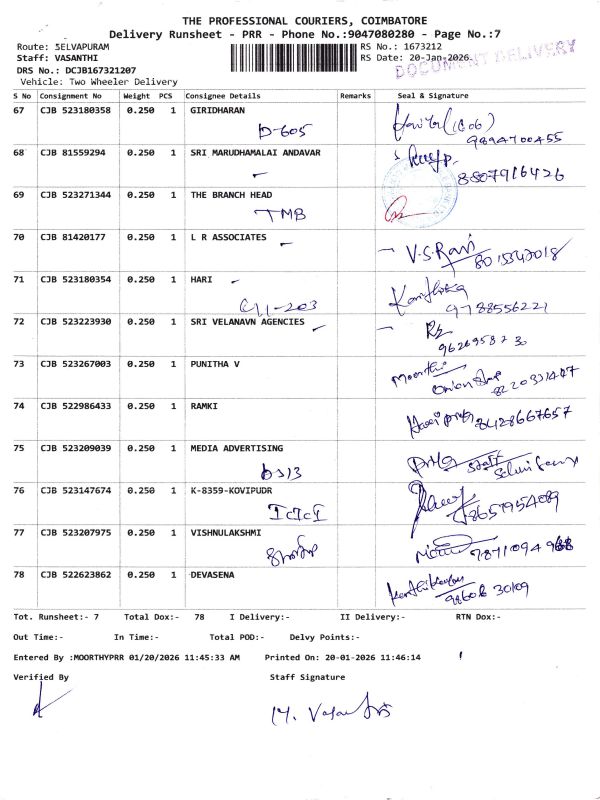 THE PROFESSIONAL COURIERS, COIMBATORE
Delivery Runsheet - PRR - Phone No.:9047080280 - Page No.:7
Route: SELVAPURAM
RS No.: 1673212
Staff: VASANTHI
RS Date: 20-Jan-2026
DOCUMENT DELIVERY
DRS No.: DCJB167321207
Vehicle: Two Wheeler Delivery
S No Consignment No Weight PCS Consignee Details Remarks Seal & Signature
67 CJB 523180358 0.250 1 GIRIDHARAN
D-605
9894700455
68 CJB 81559294 0.250 1 SRI MARUDHAMALAI ANDAVAR
8807916426
69 CJB 523271344 0.250 1 THE BRANCH HEAD
TMB
70 CJB 81420177 0.250 1 L R ASSOCIATES
V.S.Ravi
71 CJB 523180354 0.250 1 HARI
C11-203
9788556221
72 CJB 523223930 0.250 1 SRI VELANAVN AGENCIES
73 CJB 523267003 0.250 1 PUNITHA V
Moorthi
74 CJB 522986433 0.250 1 RAMKI
8428667657
75 CJB 523209039 0.250 1 MEDIA ADVERTISING
Staff
76 CJB 523147674 0.250 1 K-8359-KOVIPUDR
ICICI
77 CJB 523207975 0.250 1 VISHNULAKSHMI
78 CJB 522623862 0.250 1 DEVASENA
Tot. Runsheet:- 7 Total Dox:- 78 I Delivery:- II Delivery:- RTN Dox:-
Out Time:- In Time:- Total POD:- Delvy Points:-
Entered By :MOORTHYPRR 01/20/2026 11:45:33 AM Printed On: 20-01-2026 11:46:14
Verified By Staff Signature